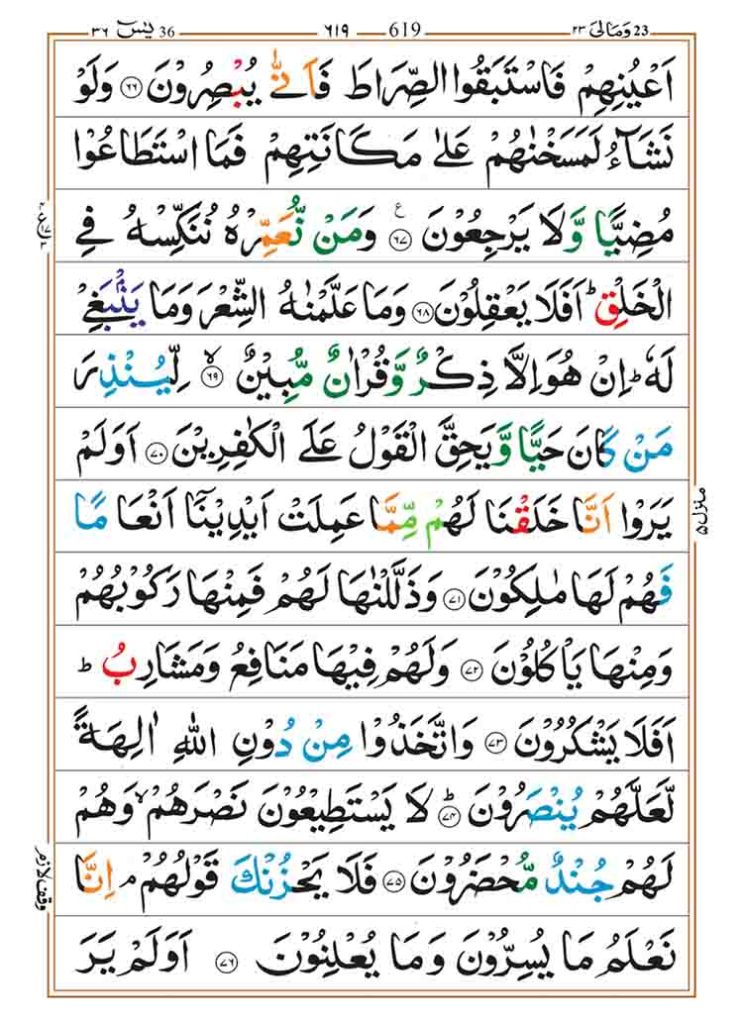 36 یٰسٓ ۳۶ ۶۱۹ 619 23 وَمَالِیَ ۲۳
اَعْيُنِهِمْ فَاسْتَبَقُوا الصِّرَاطَ فَاَنّٰى يُبْصِرُوْنَ ﴿۶۶﴾ وَلَوْ
نَشَآءُ لَمَسَخْنٰهُمْ عَلٰى مَكَانَتِهِمْ فَمَا اسْتَطَاعُوْا
مُضِيًّا وَّلَا يَرْجِعُوْنَ ﴿۶۷﴾ؒ وَمَنْ نُّعَمِّرْهُ نُنَكِّسْهُ فِى
الْخَلْقِ ؕ اَفَلَا يَعْقِلُوْنَ ﴿۶۸﴾ وَمَا عَلَّمْنٰهُ الشِّعْرَ وَمَا يَنْۢبَغِىْ
لَهٗ ؕ اِنْ هُوَ اِلَّا ذِكْرٌ وَّقُرْاٰنٌ مُّبِيْنٌ ﴿۶۹﴾ۙ لِّيُنْذِرَ
مَنْ كَانَ حَيًّا وَّيَحِقَّ الْقَوْلُ عَلَى الْكٰفِرِيْنَ ﴿۷۰﴾ اَوَلَمْ
يَرَوْا اَنَّا خَلَقْنَا لَهُمْ مِّمَّا عَمِلَتْ اَيْدِيْنَاۤ اَنْعَامًا
فَهُمْ لَهَا مٰلِكُوْنَ ﴿۷۱﴾ وَذَلَّلْنٰهَا لَهُمْ فَمِنْهَا رَكُوْبُهُمْ
وَمِنْهَا يَاْكُلُوْنَ ﴿۷۲﴾ وَلَهُمْ فِيْهَا مَنَافِعُ وَمَشَارِبُ ؕ
اَفَلَا يَشْكُرُوْنَ ﴿۷۳﴾ وَاتَّخَذُوْا مِنْ دُوْنِ اللّٰهِ اٰلِهَةً
لَّعَلَّهُمْ يُنْصَرُوْنَ ﴿۷۴﴾ؕ لَا يَسْتَطِيْعُوْنَ نَصْرَهُمْ ۙ وَهُمْ
لَهُمْ جُنْدٌ مُّحْضَرُوْنَ ﴿۷۵﴾ فَلَا يَحْزُنْكَ قَوْلُهُمْ ۘ اِنَّا
نَعْلَمُ مَا يُسِرُّوْنَ وَمَا يُعْلِنُوْنَ ﴿۷۶﴾ اَوَلَمْ يَرَ
منزل ۵
وقف لازم